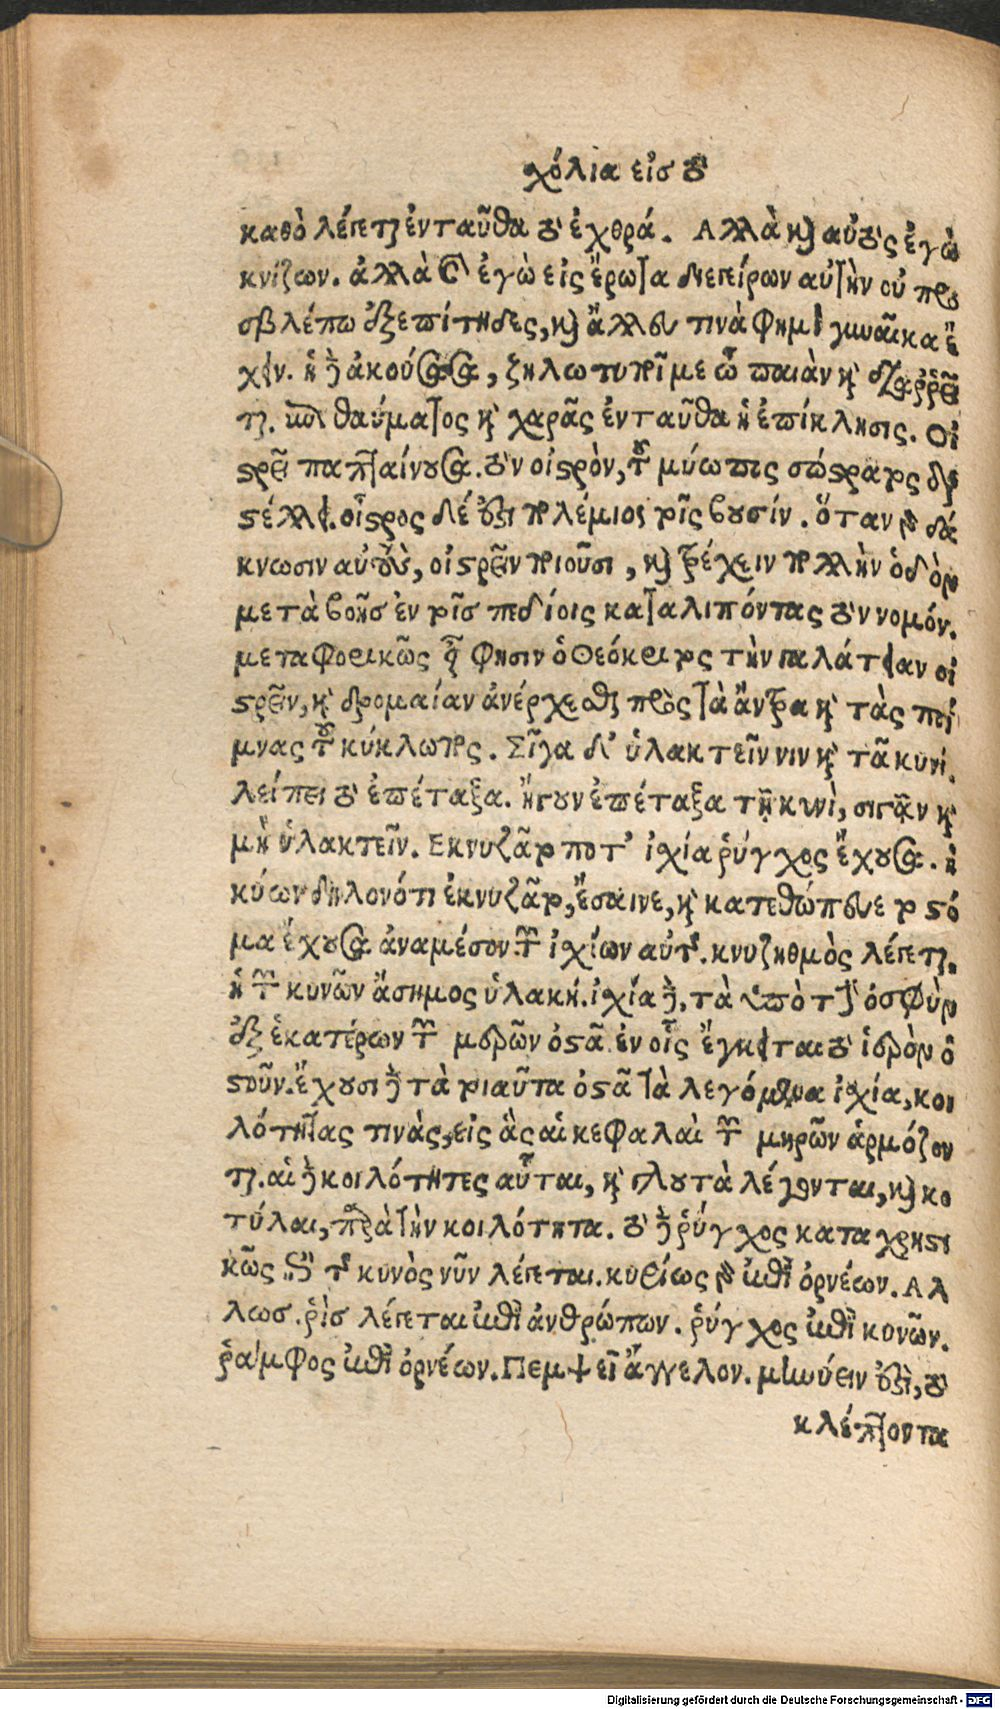 χόλια εἰσ τὸ
καθὸ λέγεται ἐνταῦθα τὸ ἐχθρά. Αλλὰ καὶ αὐτὸς ἐγὼ
κνίζων. ἀλλὰ καὶ ἐγὼ εἰς ἔρωτα διεγείρων αὐτὴν οὐ προ
σβλέπω ἐξεπίτηδες, καὶ ἄλλην τινὰ φημὶ γυναῖκα ἔ
χειν. ἡ δὲ ἀκούσασα, ζηλοτυπεῖ με ὦ παιὰν καὶ
ται. καὶ θαύματος καὶ χαρᾶς ἐνταῦθα ἡ ἐπίκλησις. Οἰ
στρεῖ παπταίνουσα. τὸν οἶστρον, τοῦ μύωπος
οἶστρος δέ ἐστι πολέμιος τοῖς βουσίν. ὅταν γὰρ δά
κνωσιν αὐτοὺς, οἰστρεῖν ποιοῦσι, καὶ τρέχειν πολλὴν ὁδὸν
μετὰ βοῆσ ἐν τοῖσ πεδίοις καταλιπόντας τὸν νομόν.
μεταφορικῶς οὖν φησιν ὁ Θεόκριτος τὴν γαλάτειαν οἰ
στρεῖν, καὶ δρομαίαν ἀνέρχεσθαι πρὸς τὰ ἄντρα καὶ τὰς ποί
μνας τοῦ κύκλωπος. Σῖγα δ' ὑλακτεῖν νιν καὶ τᾶ κυνί.
λείπει τὸ ἐπέταξα. ἤγουν ἐπέταξα τῇ κυνὶ, σιγᾷν καὶ
μὴ ὑλακτεῖν. Εκνυζᾶτο ποτ' ἰχία ῥύγχος ἔχουσα. ἡ
κύων δηλονότι ἐκνυζᾶτο, ἔσαινε, καὶ κατεθώπευε τὸ στό
μα ἔχουσα ἀναμέσον τῶν ἰχίων αὐτοῦ. κνυζηθμὸς λέγεται.
ἡ τῶν κυνῶν ἄσημος ὑλακή. ἰχία δὲ, τὰ ὑπὸ τὴν ὀσφὺν
ἐξ ἑκατέρων τῶν μερῶν ὀστᾶ ἐν οἷς ἔγκειται τὸ ἱερὸν ὀ
στοῦν. ἔχουσι δὲ τὰ τοιαῦτα ὀστᾶ τὰ λεγόμενα ἰχία, κοι
λότητας τινὰς, εἰς ἃς αἱ κεφαλαὶ τῶν μηρῶν ἁρμόζον
ται. αἱ δὲ κοιλότητες αὗται, καὶ γλουτὰ λέγονται, καὶ κο
τύλαι, παρὰ τὴν κοιλότητα. τὸ δὲ ῥύγχος καταχρηστι
κῶς ἐπὶ τοῦ κυνὸς νῦν λέγεται. κυρίως γὰρ ἐπὶ ὀρνέων. Αλ
λωσ. ῥὶσ λέγεται ἐπὶ ἀνθρώπων. ῥύγχος ἐπὶ κυνῶν.
ῥάμφος ἐπὶ ὀρνέων. Πεμψεῖ ἄγγελον. μηνύειν ἐστὶ, τὸ
κλέπτοντα
Digitalisierung gefördert durch die Deutsche Forschungsgemeinschaft - DFG